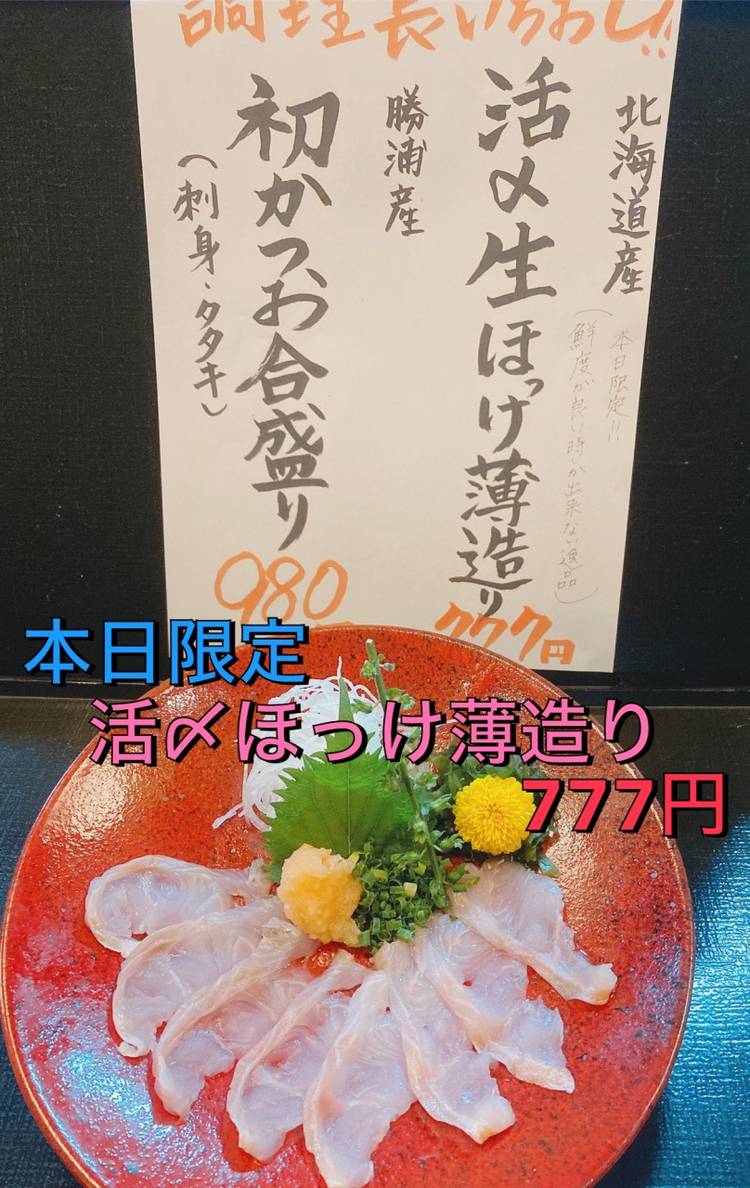 調理長いちおし!!
北海道産
本日限定!!
(鮮度が良い時しか出来ない逸品)
活〆生ほっけ薄造り
777円
勝浦産
初かつお合盛り
(刺身、タタキ)
980
本日限定
活〆ほっけ薄造り
777円